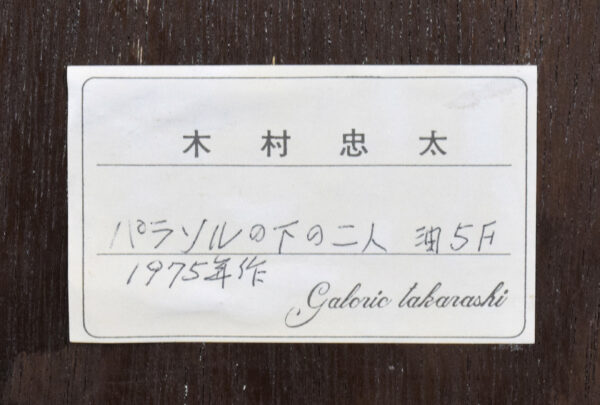 木村忠太
パラソルの下の二人 油5F
1975年作
Galerie takarashi